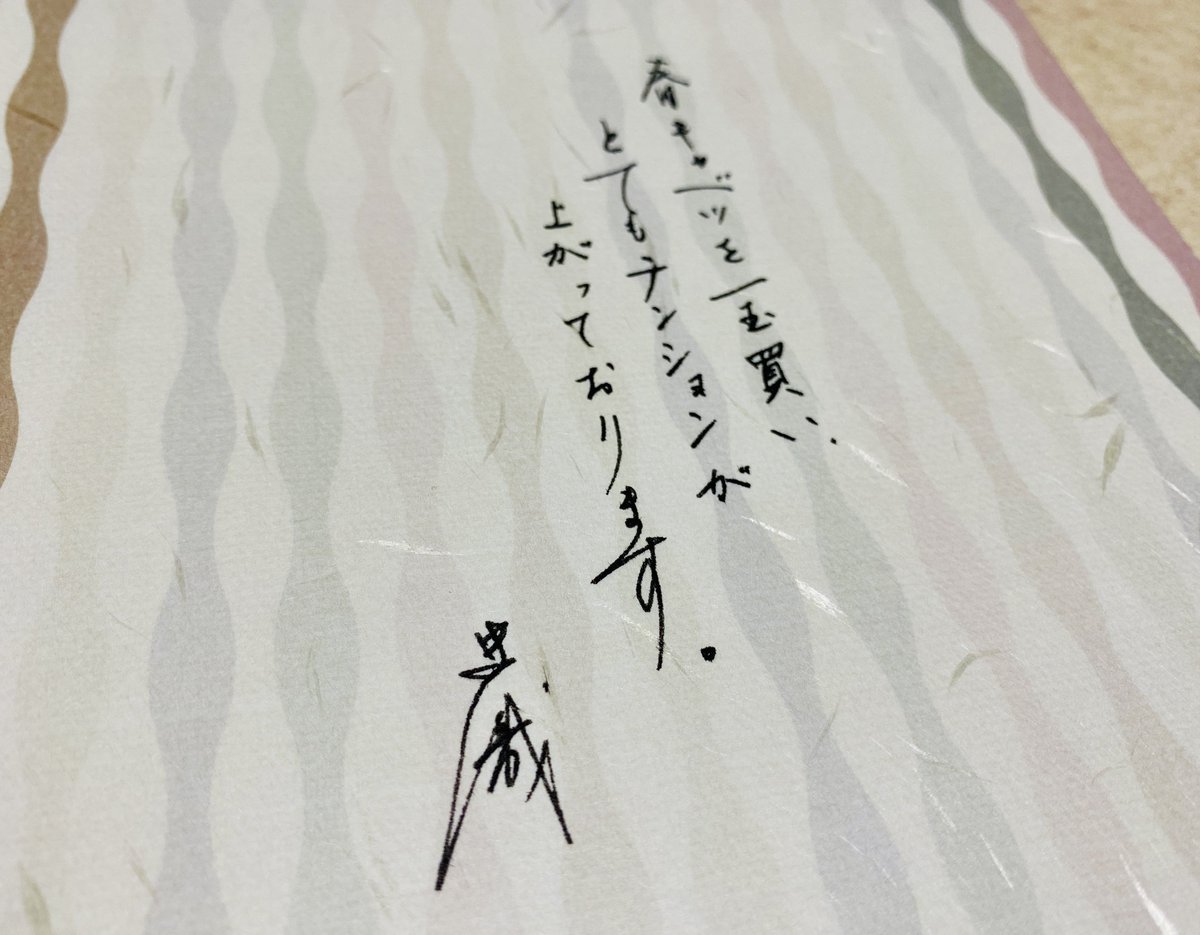 春キャベツを一玉買い、
とてもテンションが
上がっております。